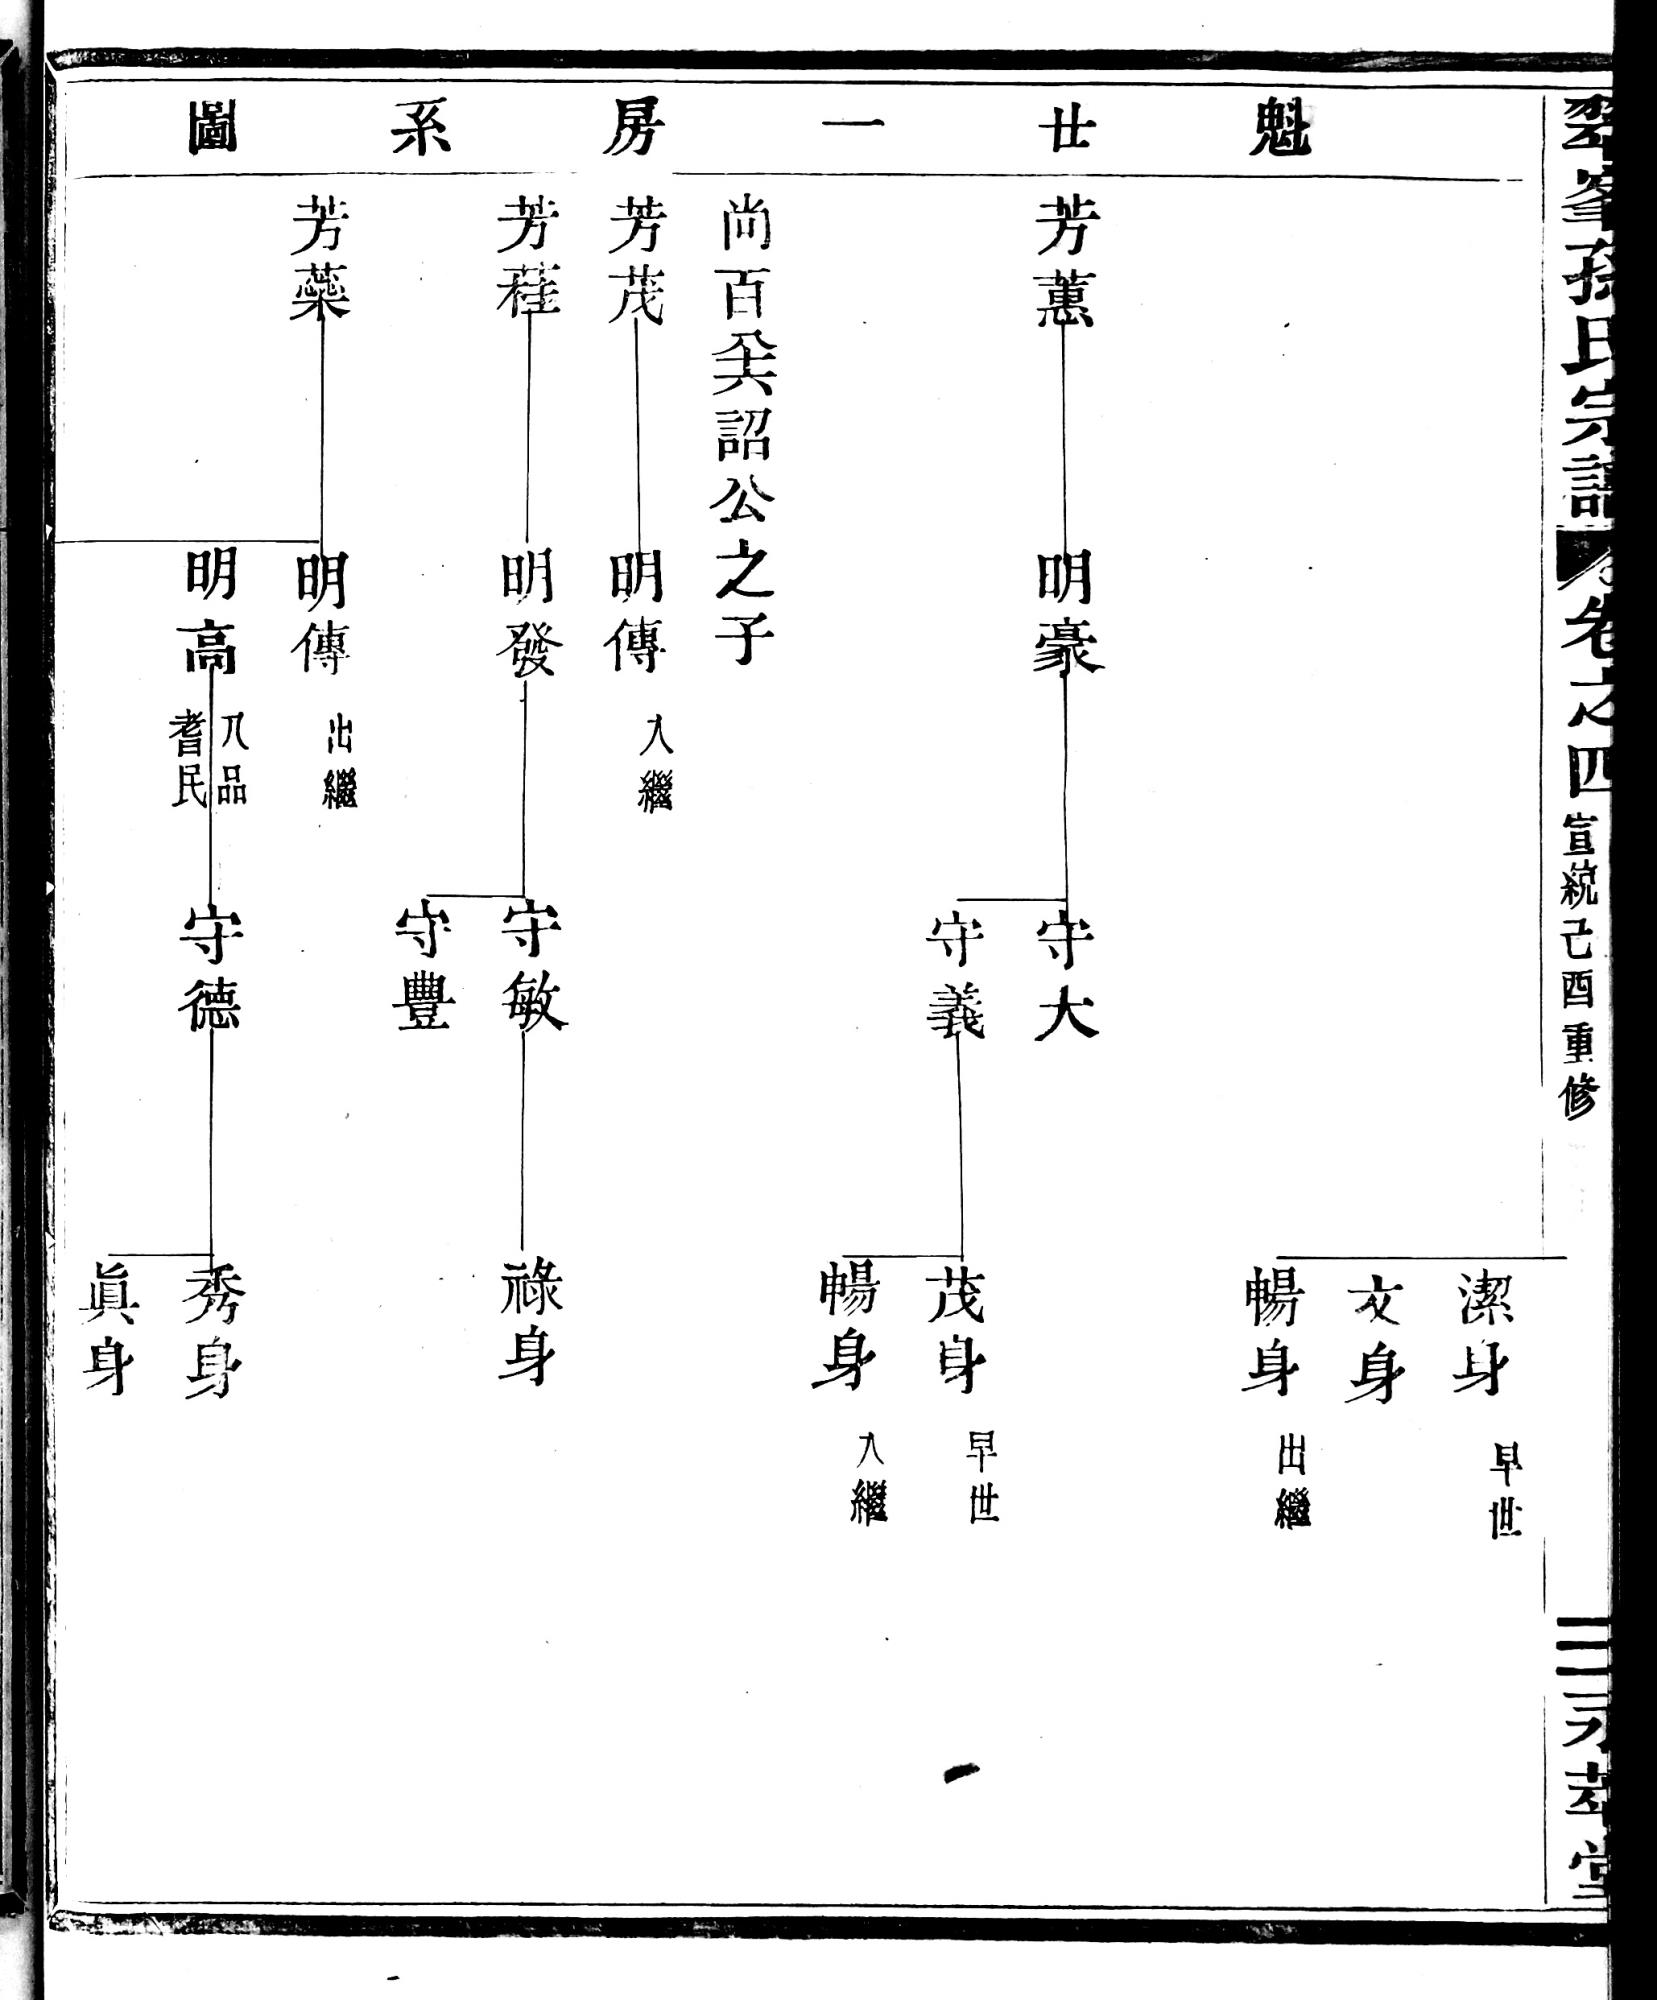 魁廿一房系圖
潔身 早世
文身
暢身 出繼
芳蕙
明豪
守大
守義
茂身 早世
暢身 入繼
尚百六詔公之子
芳茂
明傳 入繼
芳蓕
明發
守敏
守豐
祿身
芳蘂
明傳 出繼
明高 八品耆民
守德
秀身
眞身
峯孫氏宗譜
卷之四 宣統己酉重修
堂